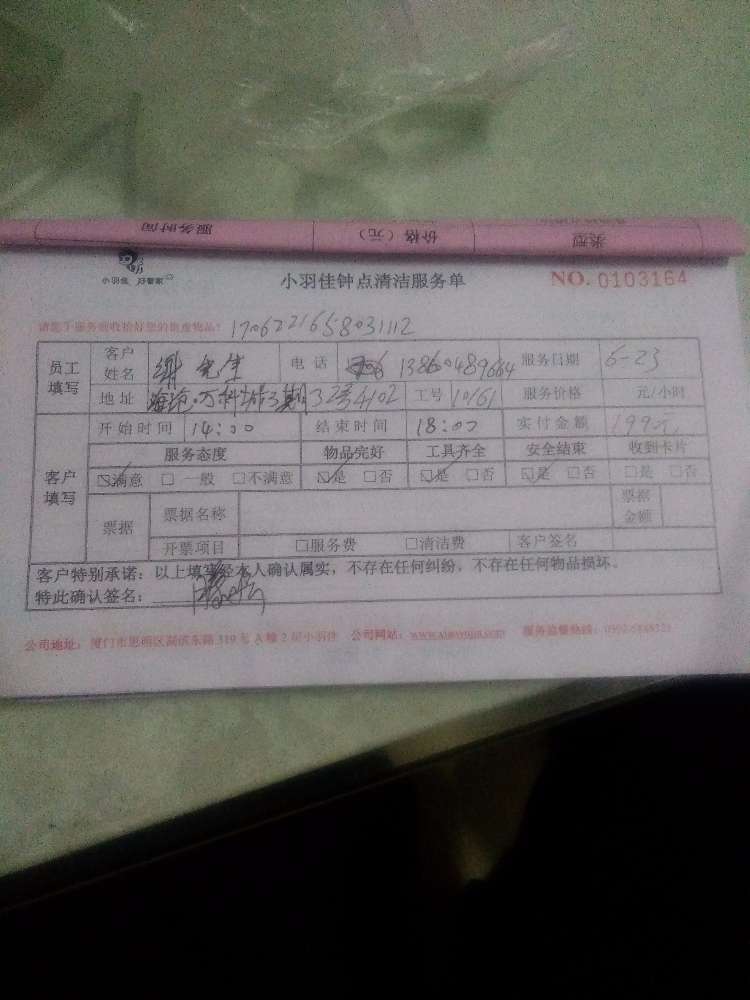 服务时间 价格（元） 类型
小羽佳 好管家 小羽佳钟点清洁服务单 NO. 0103164
请您于服务前收拾好您的贵重物品！ 1706221658031112
员工填写 客户姓名 谢先生 电话 13860489664 服务日期 6-23
地址 3期3号4102 工号 10161 服务价格 元/小时
开始时间 14:00 结束时间 18:00 实付金额 199元
客户填写 服务态度 物品完好 工具齐全 安全结束 收到卡片
☑满意 □一般 □不满意 ☑是 □否 ☑是 □否 ☑是 □否 □是 □否
票据 票据名称 票据金额
开票项目 □服务费 □清洁费 客户签名
客户特别承诺：以上填写经本人确认属实，不存在任何纠纷，不存在任何物品损坏。
特此确认签名：
公司地址：厦门市思明区湖滨东路 319 号 A 幢 2 层小羽佳 公司网站： 服务监督热线：